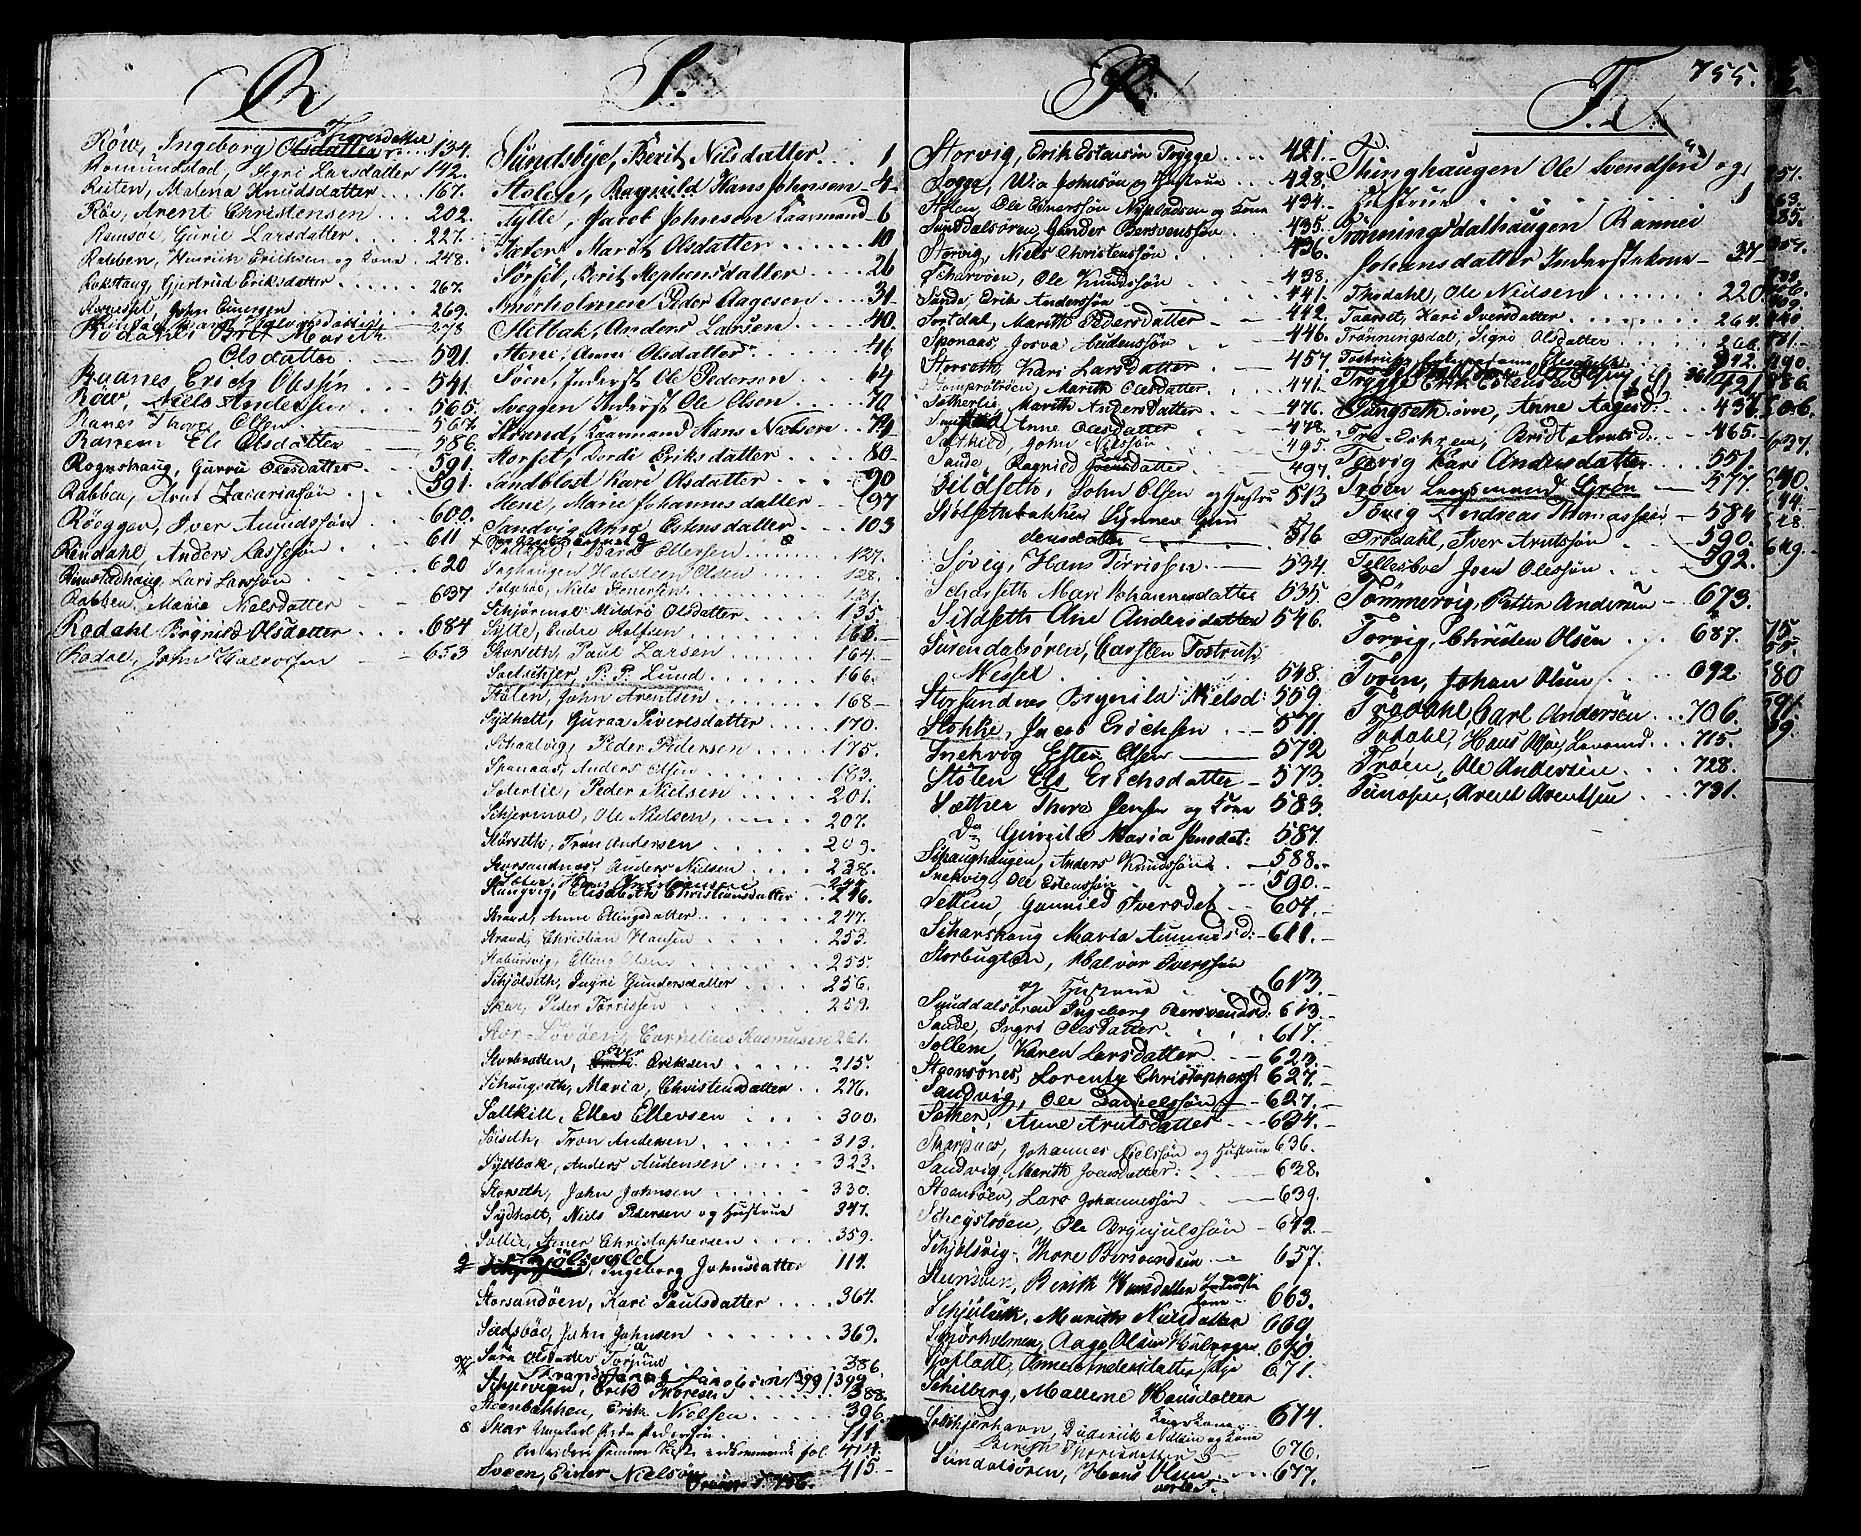 755.
R
Thoresdatter
Röw, Ingeborg Olsdatter 134.
Romundstad, Sigri Larsdatter 142.
Ruten, Malena Knudsdatter 167.
Röe, Arent Christensen 202.
Ramsöe, Gurie Larsdatter 227.
Rabben, Henrich Erichsen og Kone 248.
Rokhaug, Gjertrud Eriksdatter 267.
John Einersen 269.
278
Rodahls Brit Marith
Olsdatter 521.
Roanes, Erich Olssön 541.
Röw, Niels Andersen 565.
Ranes Thore Ellen 567.
Rarrem Eli Olsdatter 586.
Rogneshaug, Gurru Olesdatter 591.
Rabben, Arnt Zacariasön 591.
Röeggen, Iver Amundssön 600.
Rindahl, Anders Lassesön 611
Rimstadhaug, Lars Larssön 620
Rabben, Marie Nielsdatter 637
Rodahl Brynild Olsdatter 684
Rodal, John Halvorsen 653
S.
Sundsbye, Berit Nilsdatter 1
Stolen, Ragnild Hans Johnsen 4
Sylte, Jacob Johnsen Kaarmand 6
Sæter, Marit Olsdatter 10
Sörset, Berit Stephensdatter 26
Snorholmen Peder Aagesen 31
Sletbak, Anders Larsen 40
Stene, Anne Olsdatter 46
Söen, Inderst Ole Pedersen 64
Sveggen Inderst Ole Olsen 70
Strand, Kaarmand Hans Nielsen 79
Storset, Jordi Eriksdatter 80
Sandblost Kari Olsdatter 90
Stene, Marie Johannesdatter 97
Sandvig Anne Johnsdatter 103
Baard Ellefsen 127.
Soghaugen Halsteen Olsen 128.
Solgaas, Niels Stenersen 131.
Schjörmo, Mildrö Olsdatter 135
Sylte, Endre Rolfsen 160
Storseth, Paul Larsen 164.
Soelsethjer, P. P. Lund 166.
Stölen, John Arentsen 168
Sydhalt, Guraa Sivertsdatter 170.
Schaalvig, Peder Pedersen 175.
Sponaas, Anders Olsen 183.
Soterlie, Peder Nielsen 201.
Schjermoe, Ole Nielsen 207.
Störseth, Tron Andersen 209.
Storsandnes, Anders Nielsen 238.
244
Stangvig, Elisabeth Christiansdatter 246.
Strand, Anne Ellingsdatter 247.
Strand, Christian Hansen 253.
Stabursvig, Elling Olsen 255.
Schjölseth, Ingri Gundersdatter 256.
Skar, Peder Torrissen 259.
Stor-Lövöen, Cornelius Rasmusen 261.
Storbratten, Iver Eriksen 215.
Schougseth, Maria Christensdatter 276.
Salthill, Ellev Ellevsen 300.
Söiseth, Tron Andersen 313.
Syltbak, Anders Audensen 323.
Storseth, John Johnsen 330.
Sydhalt, Niels Pedersen og Hustrue 347.
Sollie, Stener Christophersen 359.
Skjölsvold
Ingeborg Johnsdatter 114.
Storsandöen, Kari Paulsdatter 364.
Sredsböe, John Johnsen 369.
Sara Olsdatter Torjuul 386.
Jacobsen 399
Schjörvigen, Erik Thoresen 388.
Steenbakken, Erik Nielsen 396.
Skar Peder Pedersön 411.
414.
Sveen, Einer Nielsön 415.
S.
Storvig, Erik Estensön Trygge 421.
Sogge, Wia Johnsön og Hustrue 428.
Stölen, Ole Einerssön og Kone 434.
Sunddalsören, Gunder Bersvenssön 435.
Storvig, Niels Christenssön 436.
Scharvöen, Ole Knudssön 438.
Sande, Erik Anderssön 441.
Sortdal, Marith Pedersdatter 442.
Sponaas, Josva Audenssön 446.
Storseth, Kari Larsdatter 457.
Stompröroien, Marith Olesdatter 471.
Sotherlie, Marith Andersdatter 476.
Anne Olesdatter 478.
John Nielssön 495.
Sande, Ragnied Joensdatter 497.
Sildseth, John Olsen og Hustru 513
Stölsetabakken Synnev Gundersdatter 516
Søvig, Hans Tørrissen 534.
Scharseth Mari Johannesdatter 535
Sildseth Ane Andersdatter 546.
Surendalsören, Carsten Tostrup
Nesset 548.
Storsandnes Brynild Nielsd: 559.
Stokke, Jacob Erichsen 571.
Snekvig Esten Olsen 572
Stölen Els Erichsdatter 573.
Sæther Thore Jensen og Kone 583.
Do Gunnild Maria Jonsdat: 587.
Schaughaugen, Anders Knudssön 588.
Snekvig, Ole Estenssön 590.
Settem, Gunnild Iversdat 607.
Scharshaug Maria Aumundsd: 611.
Storbugten, Halvor Iverssön
og Hustrue 613.
Sunddalsören Ingeborg Bersvendsd: 613.
Sande, Ingri Olesdatter 617.
Sollem, Karen Larsdatter 623.
Steensönes, Lorentz Christophers 627.
Sandvig, Ole Danielssön 627.
Sæther, Anne Arntsdatter 634.
Skarpnes, Johannes Nielssön og Hustrue 636.
Sandvig, Marith Joensdatter 638.
Steensöen, Lars Johannessön 639.
Scheystrøen, Ole Brynjulssön 642.
Schjölsvig, Thore Bersvendsen 657.
Berith Hansdatter Inderste
kone 663.
Schjölseth, Marith Nielsdatter 669.
Smörholmen, Aage Olsen 670.
Sjoplads, Anne Andersdatter 671.
Schilberg, Mallene Hansdatter
674.
Diderik Nilsen og Kone
676.
Sundalsören, Hans Olsen 677.
verte
T.
Thinghaugen Ole Svendsen og
Hustrue 1
Trönningsdalhaugen Rannei
Johansdatter Inderstekone 37
Thodahl, Ole Nielsen 220.
Taarset, Kari Iversdatter 264.
Trönningsdal, Sigri Olsdatter 266.
392.
Trygge Erik Estensen 421
Tungseth övre, Anne Aagesd: 437.
Tre-Eskjem, Bridt Arntsd. 465.
Torvig Kari Andersdatter 551.
Troen Lensmand Gren 577.
Tövig Andreas Thomassen 584
Trödahl, Iver Arntssön 590.
Tellesboe Joen Olessön 592.
Tømmervig, Petter Andersen 673.
Torvig, Christen Olsen 687.
Toven, Johan Olsen 692.
Trødahl, Carl Andersen 706.
Todahl, Hans Moe, Lensmd. 715.
Trøen, Ole Andersen 728.
Tunosen, Arent Arentsen 731.